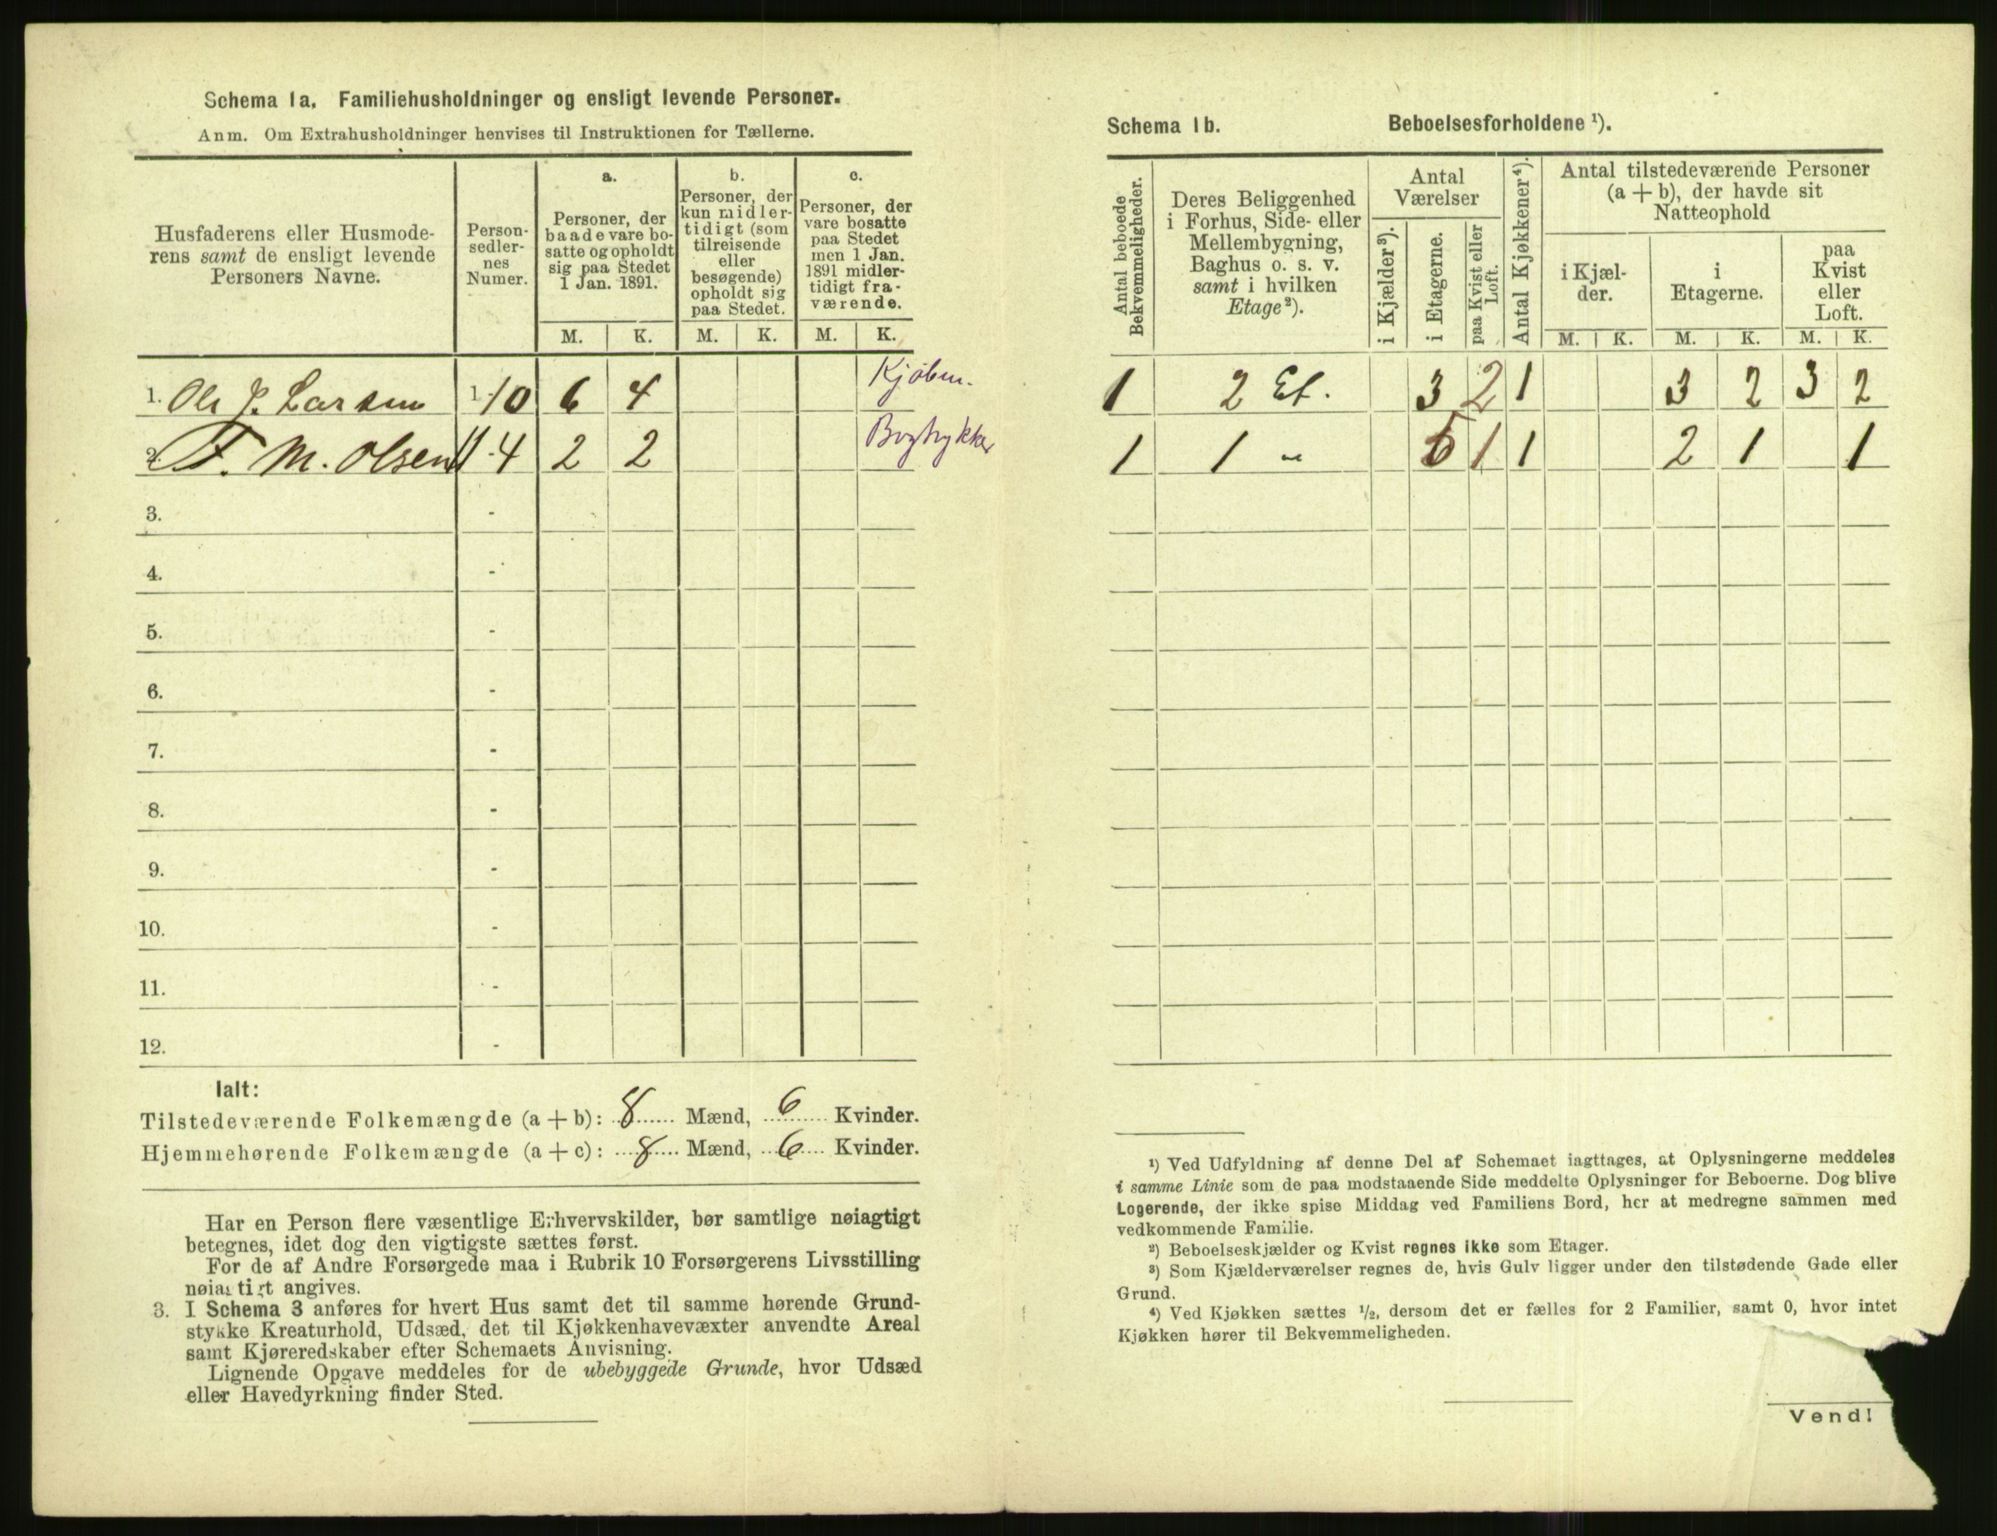 Schema 1a. Familiehusholdninger og ensligt levende Personer.
Anm. Om Extrahusholdninger henvises til Instruktionen for Tællerne.
Husfaderens eller Husmode-
rens samt de ensligt levende
Personers Navne.
Person-
sedler-
nes
Numer.
a.
Personer, der
baade vare bo-
satte og opholdt
sig paa Stedet
1 Jan. 1891.
b.
Personer, der
kun midler-
tidigt (som
tilreisende
eller
besøgende)
opholdt sig
paa Stedet.
c.
Personer, der
vare bosatte
paa Stedet
men 1 Jan.
1891 midler-
tidigt fra-
værende.
M. K. M. K. M. K.
1. Ole J. Larsen 1-10 6 4 Kjøbm.
2. F. M. Olsen 11-4 2 2 Bogtrykker
3. -
4. -
5. -
6. -
7. -
8. -
9. -
10. -
11. -
12. -
Ialt:
Tilstedeværende Folkemængde (a + b): 8 Mænd, 6 Kvinder.
Hjemmehørende Folkemængde (a + c): 8 Mænd, 6 Kvinder.
Har en Person flere væsentlige Erhvervskilder, bør samtlige nøiagtigt
betegnes, idet dog den vigtigste sættes først.
For de af Andre Forsørgede maa i Rubrik 10 Forsørgerens Livsstilling
nøiagtigt angives.
3. I Schema 3 anføres for hvert Hus samt det til samme hørende Grund-
stykke Kreaturhold, Udsæd, det til Kjøkkenhavevæxter anvendte Areal
samt Kjøreredskaber efter Schemaets Anvisning.
Lignende Opgave meddeles for de ubebyggede Grunde, hvor Udsæd
eller Havedyrkning finder Sted.
Schema 1b. Beboelsesforholdene ¹).
Antal beboede
Bekvemmeligheder.
Deres Beliggenhed
i Forhus, Side- eller
Mellembygning,
Baghus o. s. v.
samt i hvilken
Etage²).
Antal
Værelser
i Kjælder³).
i Etagerne.
paa Kvist eller
Loft.
Antal Kjøkkener⁴).
Antal tilstedeværende Personer
(a + b), der havde sit
Natteophold
i Kjæl-
der.
i
Etagerne.
paa
Kvist
eller
Loft.
M. K. M. K. M. K.
1 2 Et. 3 2 1 3 2 3 2
1 1 " 5 1 1 2 1 1
¹) Ved Udfyldning af denne Del af Schemaet iagttages, at Oplysningerne meddeles
i samme Linie som de paa modstaaende Side meddelte Oplysninger for Beboerne. Dog blive
Logerende, der ikke spise Middag ved Familiens Bord, her at medregne sammen med
vedkommende Familie.
²) Beboelseskjælder og Kvist regnes ikke som Etager.
³) Som Kjælderværelser regnes de, hvis Gulv ligger under den tilstødende Gade eller
Grund.
⁴) Ved Kjøkken sættes ½, dersom det er fælles for 2 Familier, samt 0, hvor intet
Kjøkken hører til Bekvemmeligheden.
Vend!